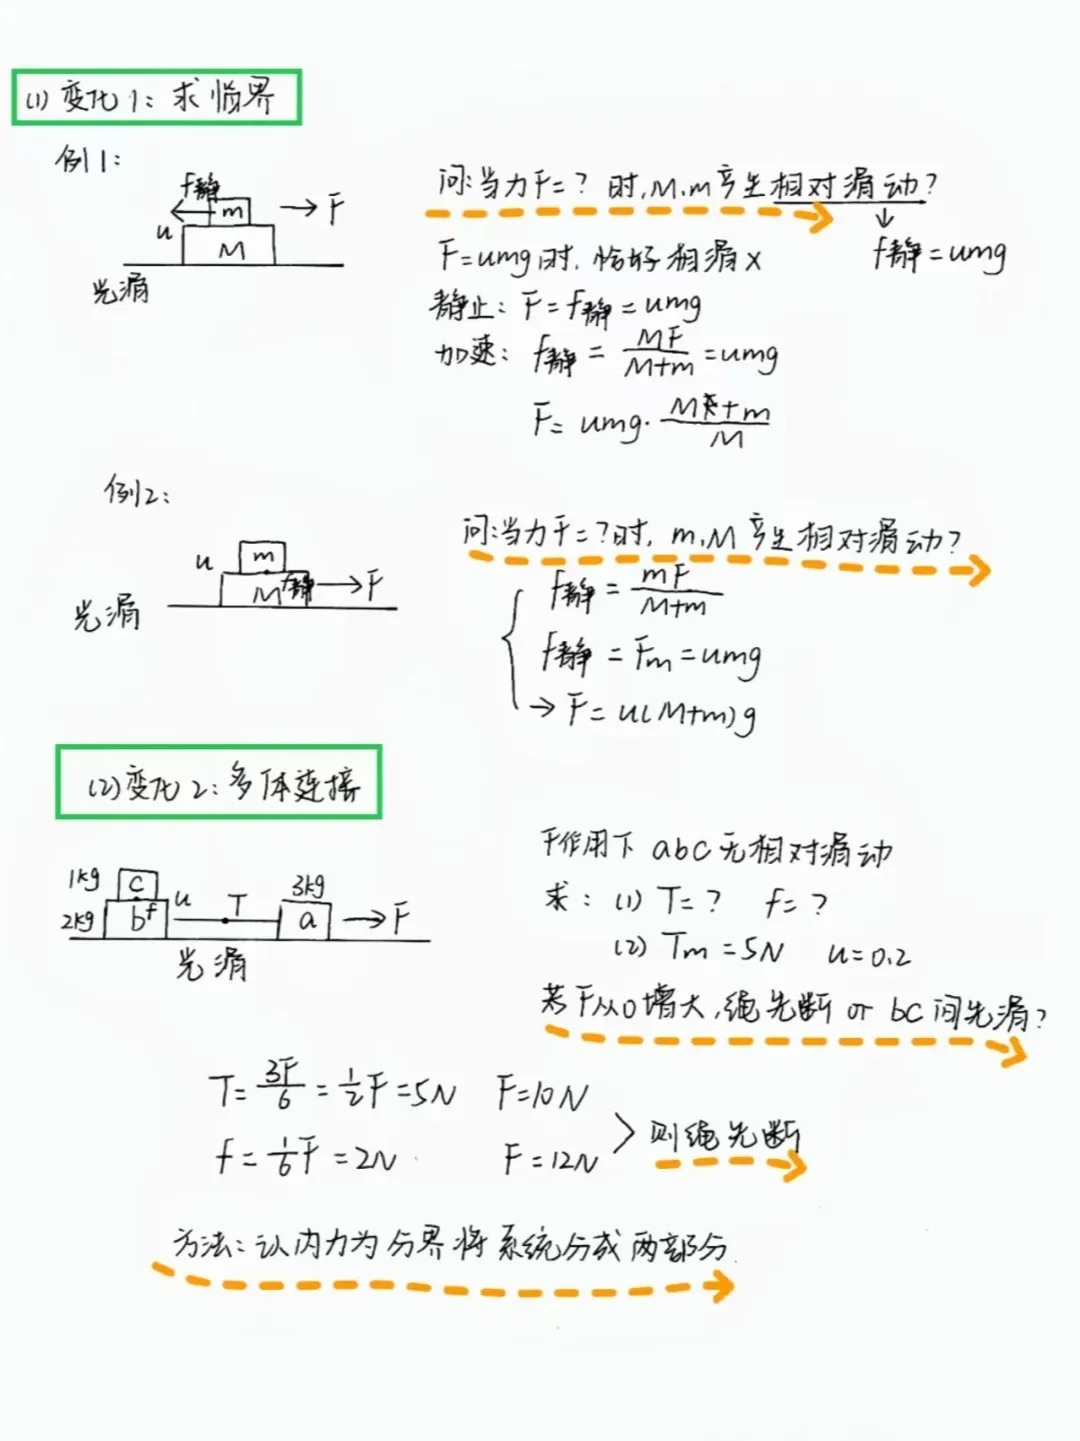 (1) 变化1: 求临界
例1:
f静
m
F
u
M
光滑
问:当力F=? 时, M.m产生相对滑动?
f静=umg
F=umg时, 恰好相滑 x
静止: F=f静=umg
加速: f静 = MF/M+m = umg
F= umg· M+m/M
例2:
u
m
M f静
F
光滑
问:当力F=?时, m,M产生相对滑动?
f静 = mF/M+m
f静 = Fm = umg
→ F= u(M+m)g
(2)变化2: 多体连接
1kg c
2kg b f
u
T
3kg
a
F
光滑
F作用下 abc无相对滑动
求: (1) T=? f=?
(2) Tm=5N u=0.2
若F从0增大, 绳先断 or bc间先滑?
T= 3F/6 = 1/2 F =5N F=10N
f = 1/6 F = 2N. F=12N
> 则绳先断
方法: 以内力为分界将系统分成两部分